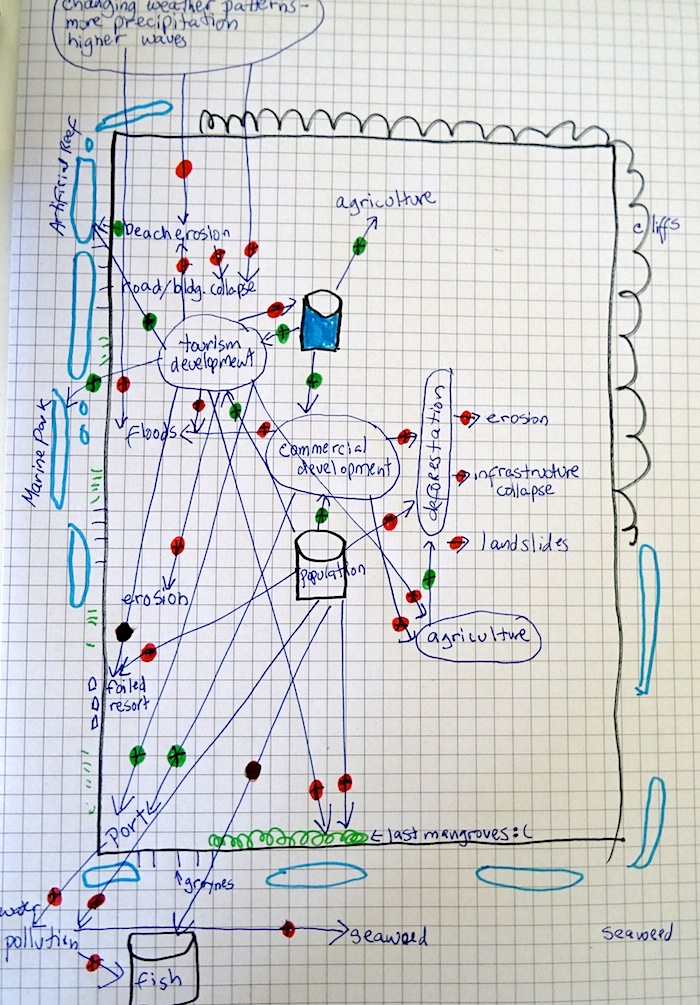 changing weather patterns-
more precipitation
higher waves
Artificial Reef
agriculture
cliffs
beach erosion
road/bldg. collapse
tourism
development
Marine Park
floods
commercial
development
deforestation
erosion
infrastructure
collapse
landslides
population
erosion
agriculture
failed
resort
port
last mangroves :(
groynes
water
pollution
seaweed
seaweed
fish